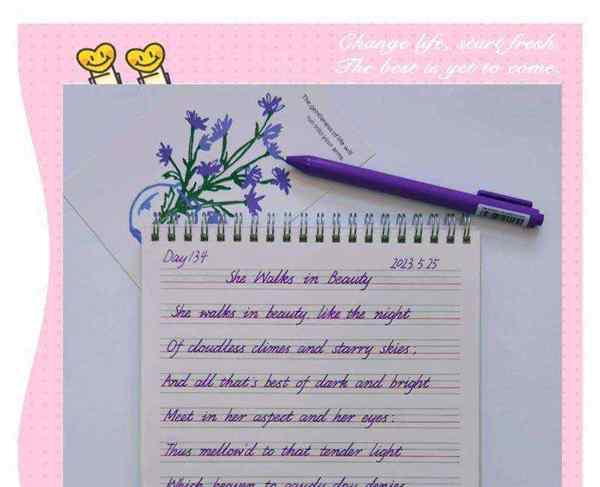 Change life, start fresh.
The best is yet to come.
The gentleness of life will
run into your arms.
Day134
2023.5.25
She Walks in Beauty
She walks in beauty, like the night
Of cloudless climes and starry skies,
And all that's best of dark and bright
Meet in her aspect and her eyes:
Thus mellow'd to that tender light
Which heaven to gaudy day denies